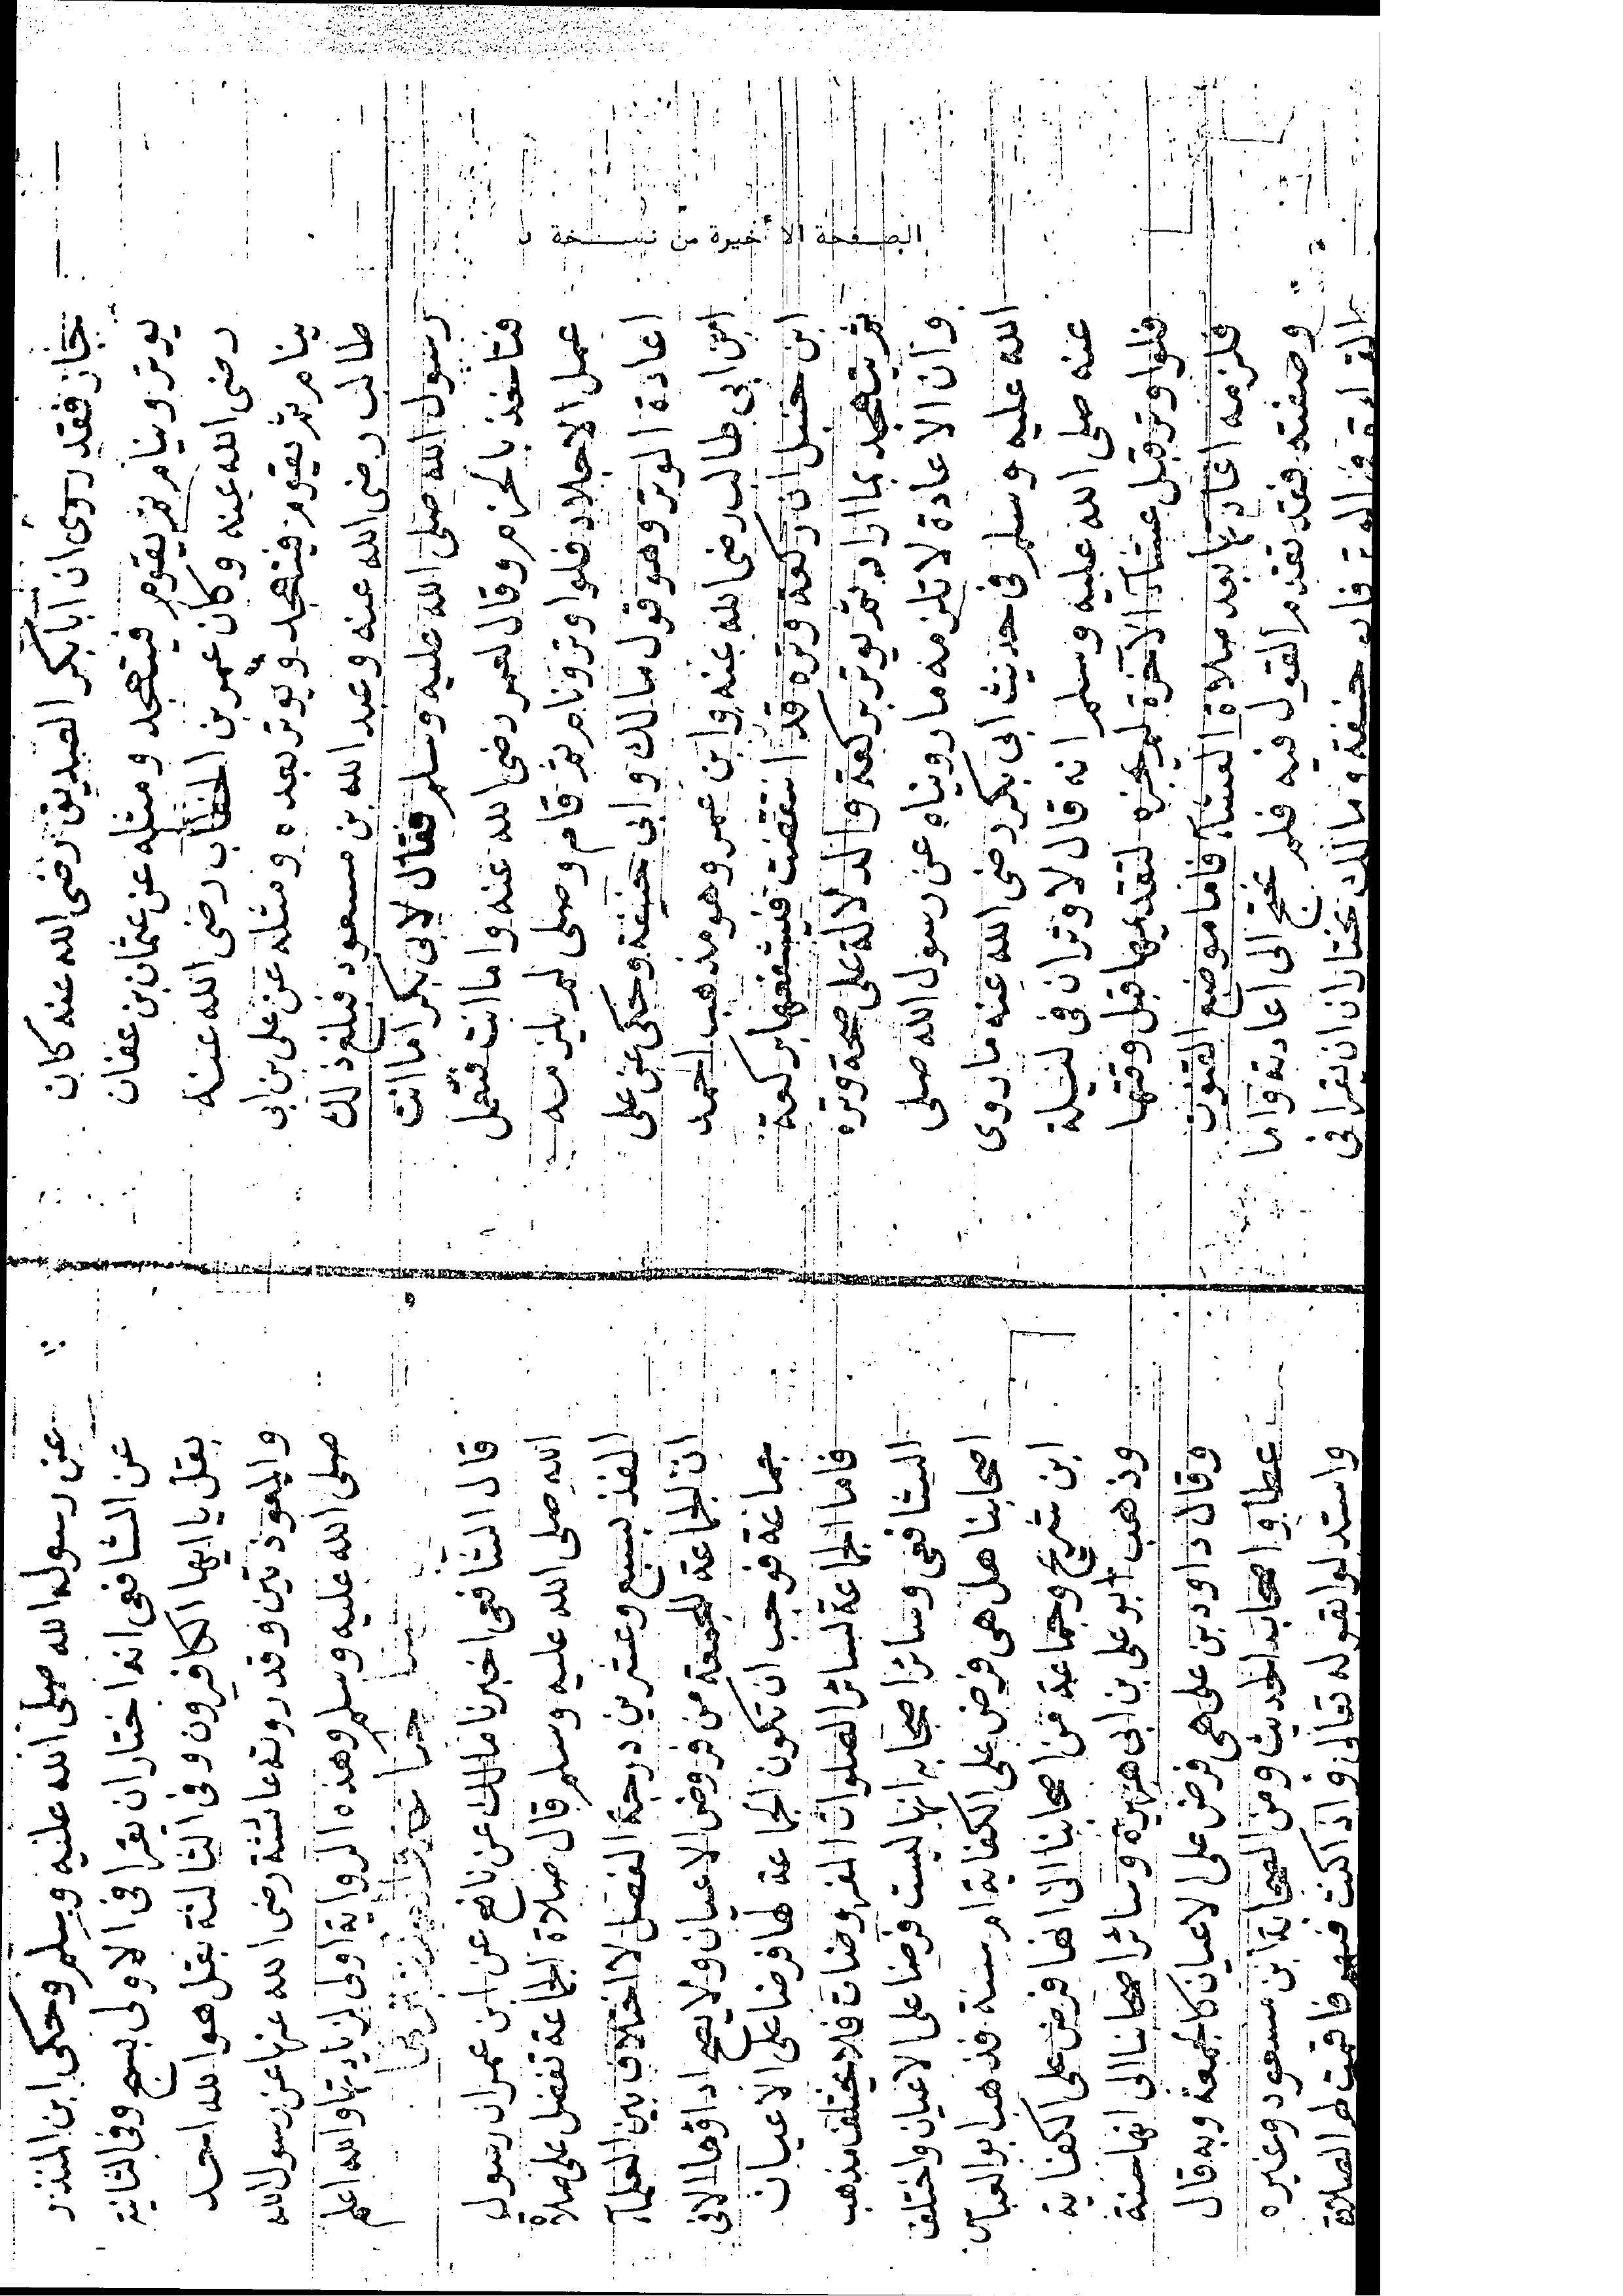 الصفحة الأخيرة من نسخة ب
فجاز فقد روى ان ابا بكر الصديق رضى الله عنه كان
يوتر وينام ثم يقوم فيتهجد ومثله عن عثمان بن عفان
رضى الله عنه وكان عمر بن الخطاب رضى الله عنه
ينام ثم يقوم فيتهجد ويوتر بعده ومثله عن على بن ابى
طالب رضى الله عنه وعبد الله بن مسعود فبلغ ذلك
رسول الله صلى الله عليه وسلم فقال لابى بكر اما انت
فتاخذ بالحزم وقال لعمر رضى الله عنه واما انت فتعمل
عمل الاجلاد فلو اوتر ونام ثم قام وصلى لم يلزمه
اعادة الوتر وهو قول مالك وابى حنيفة وحكى عن على
ابن ابى طالب رضى الله عنه وابن عمر وهو مذهب احمد
ابن حنبل ان ركعة وتره قد انتقضت فيشفعها بركعة
ثم يتهجد بما اراد ثم يوتر بركعة والدلالة على صحة وتره
وان الاعادة لا تلزمه ما رويناه عن رسول الله صلى
الله عليه وسلم فى حديث ابى بكر رضى الله عنه ما روى
عنه صلى الله عليه وسلم انه قال لا وتران فى ليلة
فلو اوتر قبل عشاء الآخرة لم يجزه لتقديمها قبل وقتها
فلزمه اعادتها بعد صلاة العشاء فاما موضع القنوت
وصفته فقد تقدم القول فيه فلم نحتج الى اعادته واما
القراءة فى الوتر فابو حنيفة ومالك يختاران ان يقرا فى
عن رسول الله صلى الله عليه وسلم وحكى ابن المنذر
عن الشافعى انه اختار ان يقرا فى الاولى بسبح وفى الثانية
بقل يا ايها الكافرون وفى الثالثة بقل هو الله احد
والمعوذتين وقد روته عائشة رضى الله عنها عن رسول الله
صلى الله عليه وسلم وهذه الرواية اولى لزيادتها والله اعلم
قال الشافعى اخبرنا مالك عن نافع عن ابن عمر ان رسول
الله صلى الله عليه وسلم قال صلاة الجماعة تفضل على صلاة
الفذ بسبع وعشرين درجة الفضل لا اختلاف بين العلماء
ان الجماعة للجمعة من فروض الاعيان ولا يصح اداؤها الا فى
جماعة فوجب ان تكون الجماعة لها فرضا على الاعيان
فاما الجماعة لسائر الصلوات المفروضات فلا يختلف مذهب
الشافعى وسائر اصحابه انها ليست فرضا على الاعيان واختلف
اصحابنا هل هى فرض على الكفاية ام سنة فذهب ابو العباس
ابن شريح وجماعة من اصحابنا الى انها فرض على الكفاية
وذهب ابو على بن ابى هريرة وسائر اصحابنا الى انها سنة
وقال داود بن على هى فرض على الاعيان كالجمعة وبه قال
عطا واصحاب الحديث ومن الصحابة ابن مسعود وغيره
واستدلوا بقوله تعالى واذا كنت فيهم فاقمت لهم الصلاة